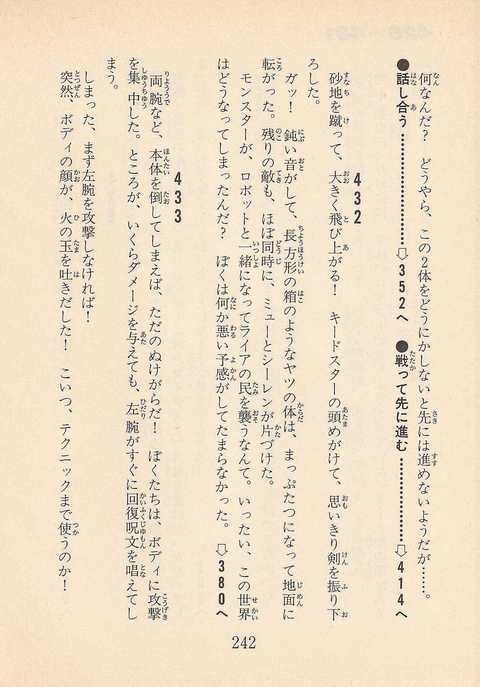 何なんだ？　どうやら、この２体をどうにかしないと先には進めないようだが……。
●話し合う……………⇨352へ　●戦って先に進む……………⇨414へ
432
砂地を蹴って、大きく飛び上がる！　キードスターの頭めがけて、思いきり剣を振り下
ろした。
ガッ！　鈍い音がして、長方形の箱のようなヤツの体は、まっぷたつになって地面に
転がった。残りの敵も、ほぼ同時に、ミューとシーレンが片づけた。
モンスターが、ロボットと一緒になってライアの民を襲うなんて。いったい、この世界
はどうなってしまったんだ？　ぼくは何か悪い予感がしてたまらなかった。　⇨380へ
433
両腕など、本体を倒してしまえば、ただのぬけがらだ！　ぼくたちは、ボディに攻撃
を集中した。ところが、いくらダメージを与えても、左腕がすぐに回復呪文を唱えてし
まう。
しまった、まず左腕を攻撃しなければ！
突然、ボディの顔が、火の玉を吐きだした！　こいつ、テクニックまで使うのか！
242